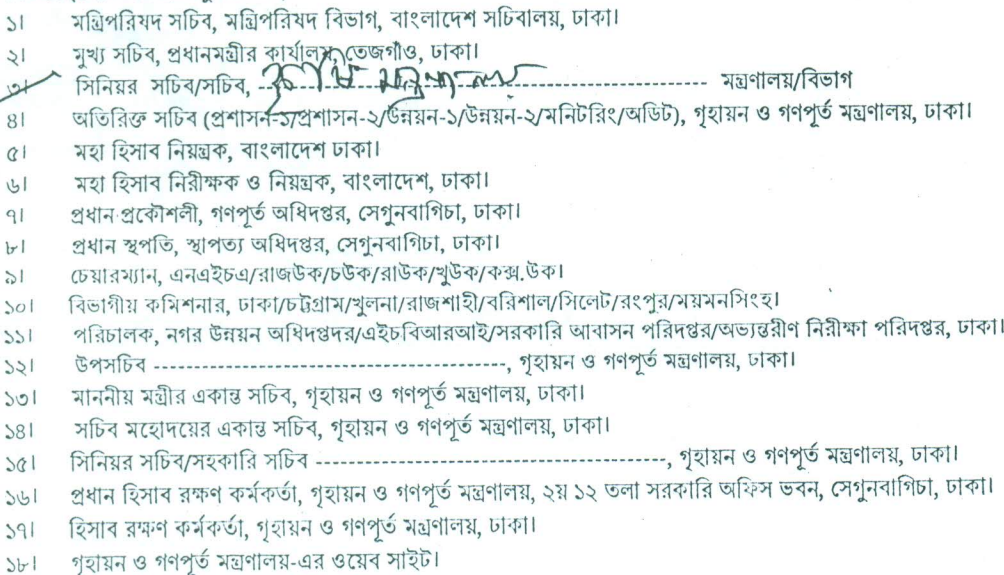 ১। মন্ত্রিপরিষদ সচিব, মন্ত্রিপরিষদ বিভাগ, বাংলাদেশ সচিবালয়, ঢাকা।
২। মুখ্য সচিব, প্রধানমন্ত্রীর কার্যালয়, তেজগাঁও, ঢাকা।
৩। সিনিয়র সচিব/সচিব, ---- কৃষি মন্ত্রণালয় ---- মন্ত্রণালয়/বিভাগ
৪। অতিরিক্ত সচিব (প্রশাসন-১/প্রশাসন-২/উন্নয়ন-১/উন্নয়ন-২/মনিটরিং/অডিট), গৃহায়ন ও গণপূর্ত মন্ত্রণালয়, ঢাকা।
৫। মহা হিসাব নিয়ন্ত্রক, বাংলাদেশ ঢাকা।
৬। মহা হিসাব নিরীক্ষক ও নিয়ন্ত্রক, বাংলাদেশ, ঢাকা।
৭। প্রধান প্রকৌশলী, গণপূর্ত অধিদপ্তর, সেগুনবাগিচা, ঢাকা।
৮। প্রধান স্থপতি, স্থাপত্য অধিদপ্তর, সেগুনবাগিচা, ঢাকা।
৯। চেয়ারম্যান, এনএইচএ/রাজউক/চউক/রাউক/খুউক/কক্স.উক।
১০। বিভাগীয় কমিশনার, ঢাকা/চট্টগ্রাম/খুলনা/রাজশাহী/বরিশাল/সিলেট/রংপুর/ময়মনসিংহ।
১১। পরিচালক, নগর উন্নয়ন অধিদপ্তদর/এইচবিআরআই/সরকারি আবাসন পরিদপ্তর/অভ্যন্তরীণ নিরীক্ষা পরিদপ্তর, ঢাকা।
১২। উপসচিব ------------------------------------, গৃহায়ন ও গণপূর্ত মন্ত্রণালয়, ঢাকা।
১৩। মাননীয় মন্ত্রীর একান্ত সচিব, গৃহায়ন ও গণপূর্ত মন্ত্রণালয়, ঢাকা।
১৪। সচিব মহোদয়ের একান্ত সচিব, গৃহায়ন ও গণপূর্ত মন্ত্রণালয়, ঢাকা।
১৫। সিনিয়র সচিব/সহকারি সচিব ------------------------------------, গৃহায়ন ও গণপূর্ত মন্ত্রণালয়, ঢাকা।
১৬। প্রধান হিসাব রক্ষণ কর্মকর্তা, গৃহায়ন ও গণপূর্ত মন্ত্রণালয়, ২য় ১২ তলা সরকারি অফিস ভবন, সেগুনবাগিচা, ঢাকা।
১৭। হিসাব রক্ষণ কর্মকর্তা, গৃহায়ন ও গণপূর্ত মন্ত্রণালয়, ঢাকা।
১৮। গৃহায়ন ও গণপূর্ত মন্ত্রণালয়-এর ওয়েব সাইট।